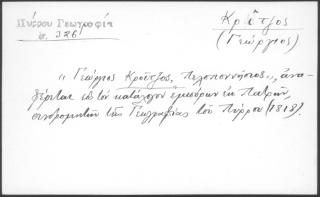 Πύρρου Γεωγραφία
σ. 326
Κρίτζος
(Γεώργιος)
"Γεώργιος Κρίτζος, Πελοποννήσιος", ἀνα-
φέρεται εἰς τὸν κατάλογον ἐμπόρων ἐκ Πατρῶν,
συνδρομητῶν τῆς Γεωγραφίας τοῦ Πύρρου (1818).